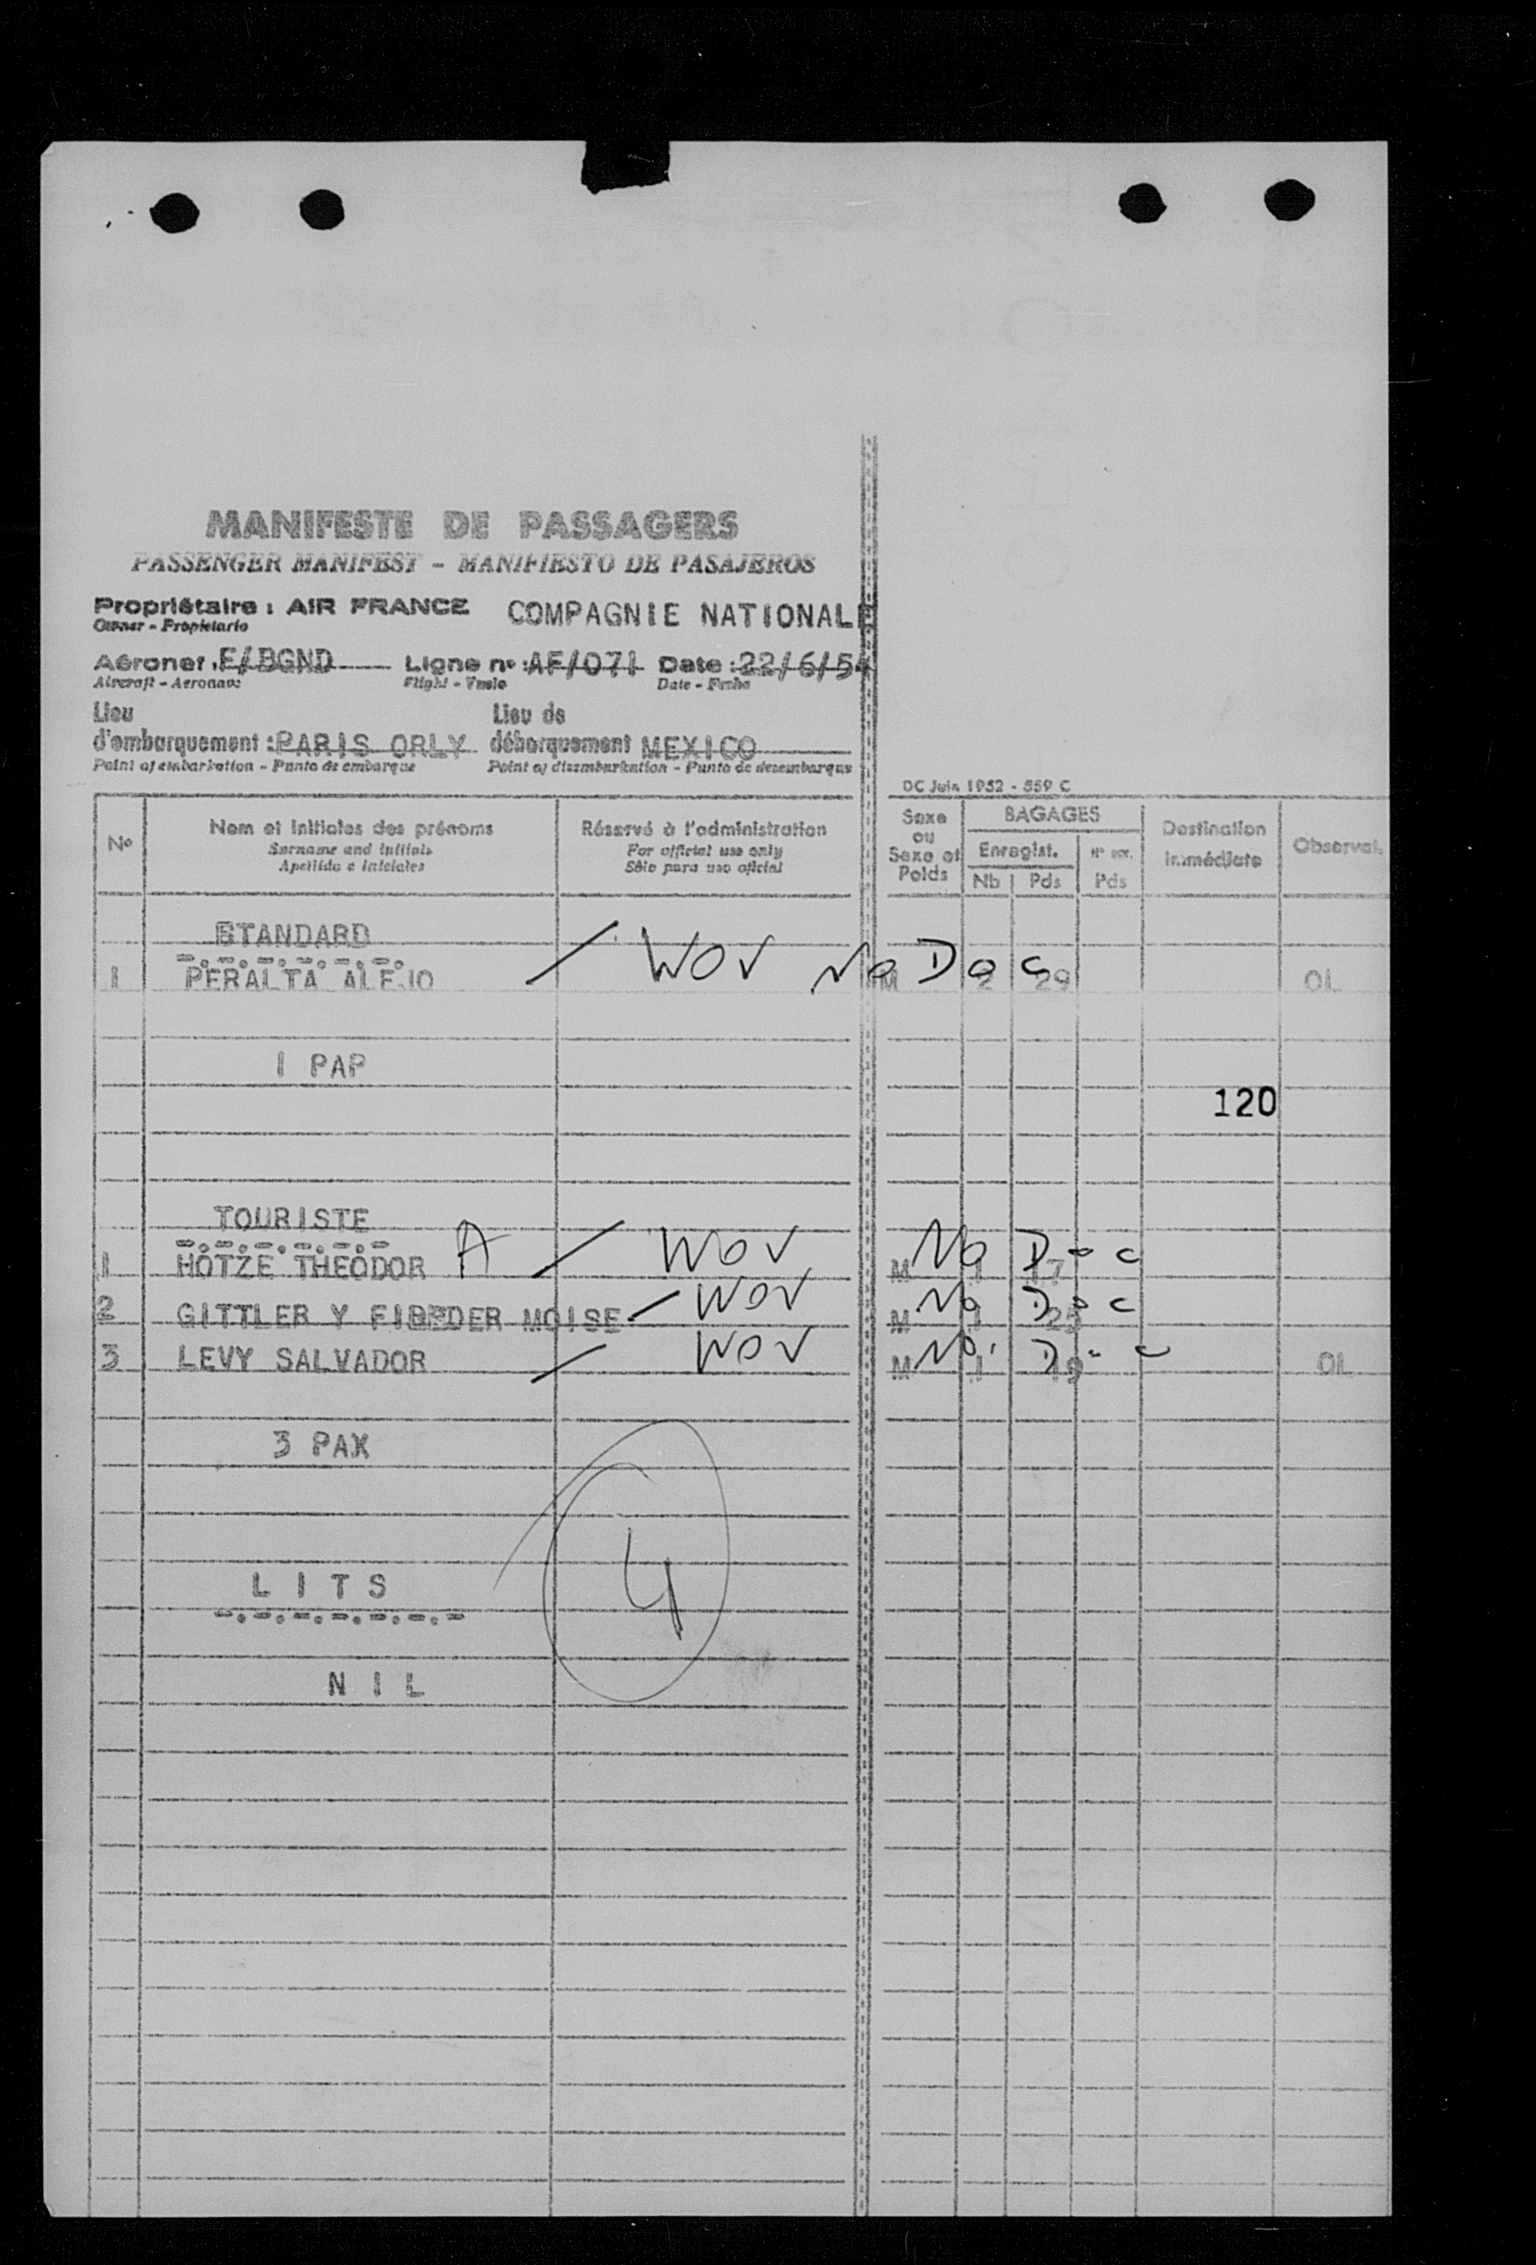 MANIFESTE DE PASSAGERS
PASSENGER MANIFEST - MANIFIESTO DE PASAJEROS
Propriétaire : AIR FRANCE COMPAGNIE NATIONALE
Owner - Propietario
Aéronef : F/BGND Ligne n° : AF/071 Date : 22/6/54
Aircraft - Aeronave Flight - Vuelo Date - Fecha
Lieu d'embarquement : PARIS ORLY Lieu de débarquement MEXICO
Point of embarkation - Punto de embarque Point of disembarkation - Punto de desembarque
DC Juin 1952 - 559 C
No Nom et initiales des prénoms Réservé à l'administration Sexe ou Sexe et Poids BAGAGES Destination immédiate Observat.
Surname and initials For official use only Enregist.
Apellido e iniciales Sólo para uso oficial Nb Pds Pds
STANDARD
1 PERALTA ALEJO / WOV No Doc M 2 29 OL
1 PAP
120
TOURISTE
1 HOTZE THEODOR A / WOV M No Doc 1
2 GITTLER Y MOISE / WOV M No Doc 1
3 LEVY SALVADOR / WOV M No Doc 1 OL
3 PAX
4
L I T S
N I L